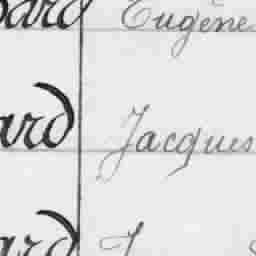 ard Eugène
ard Jacques
ard J